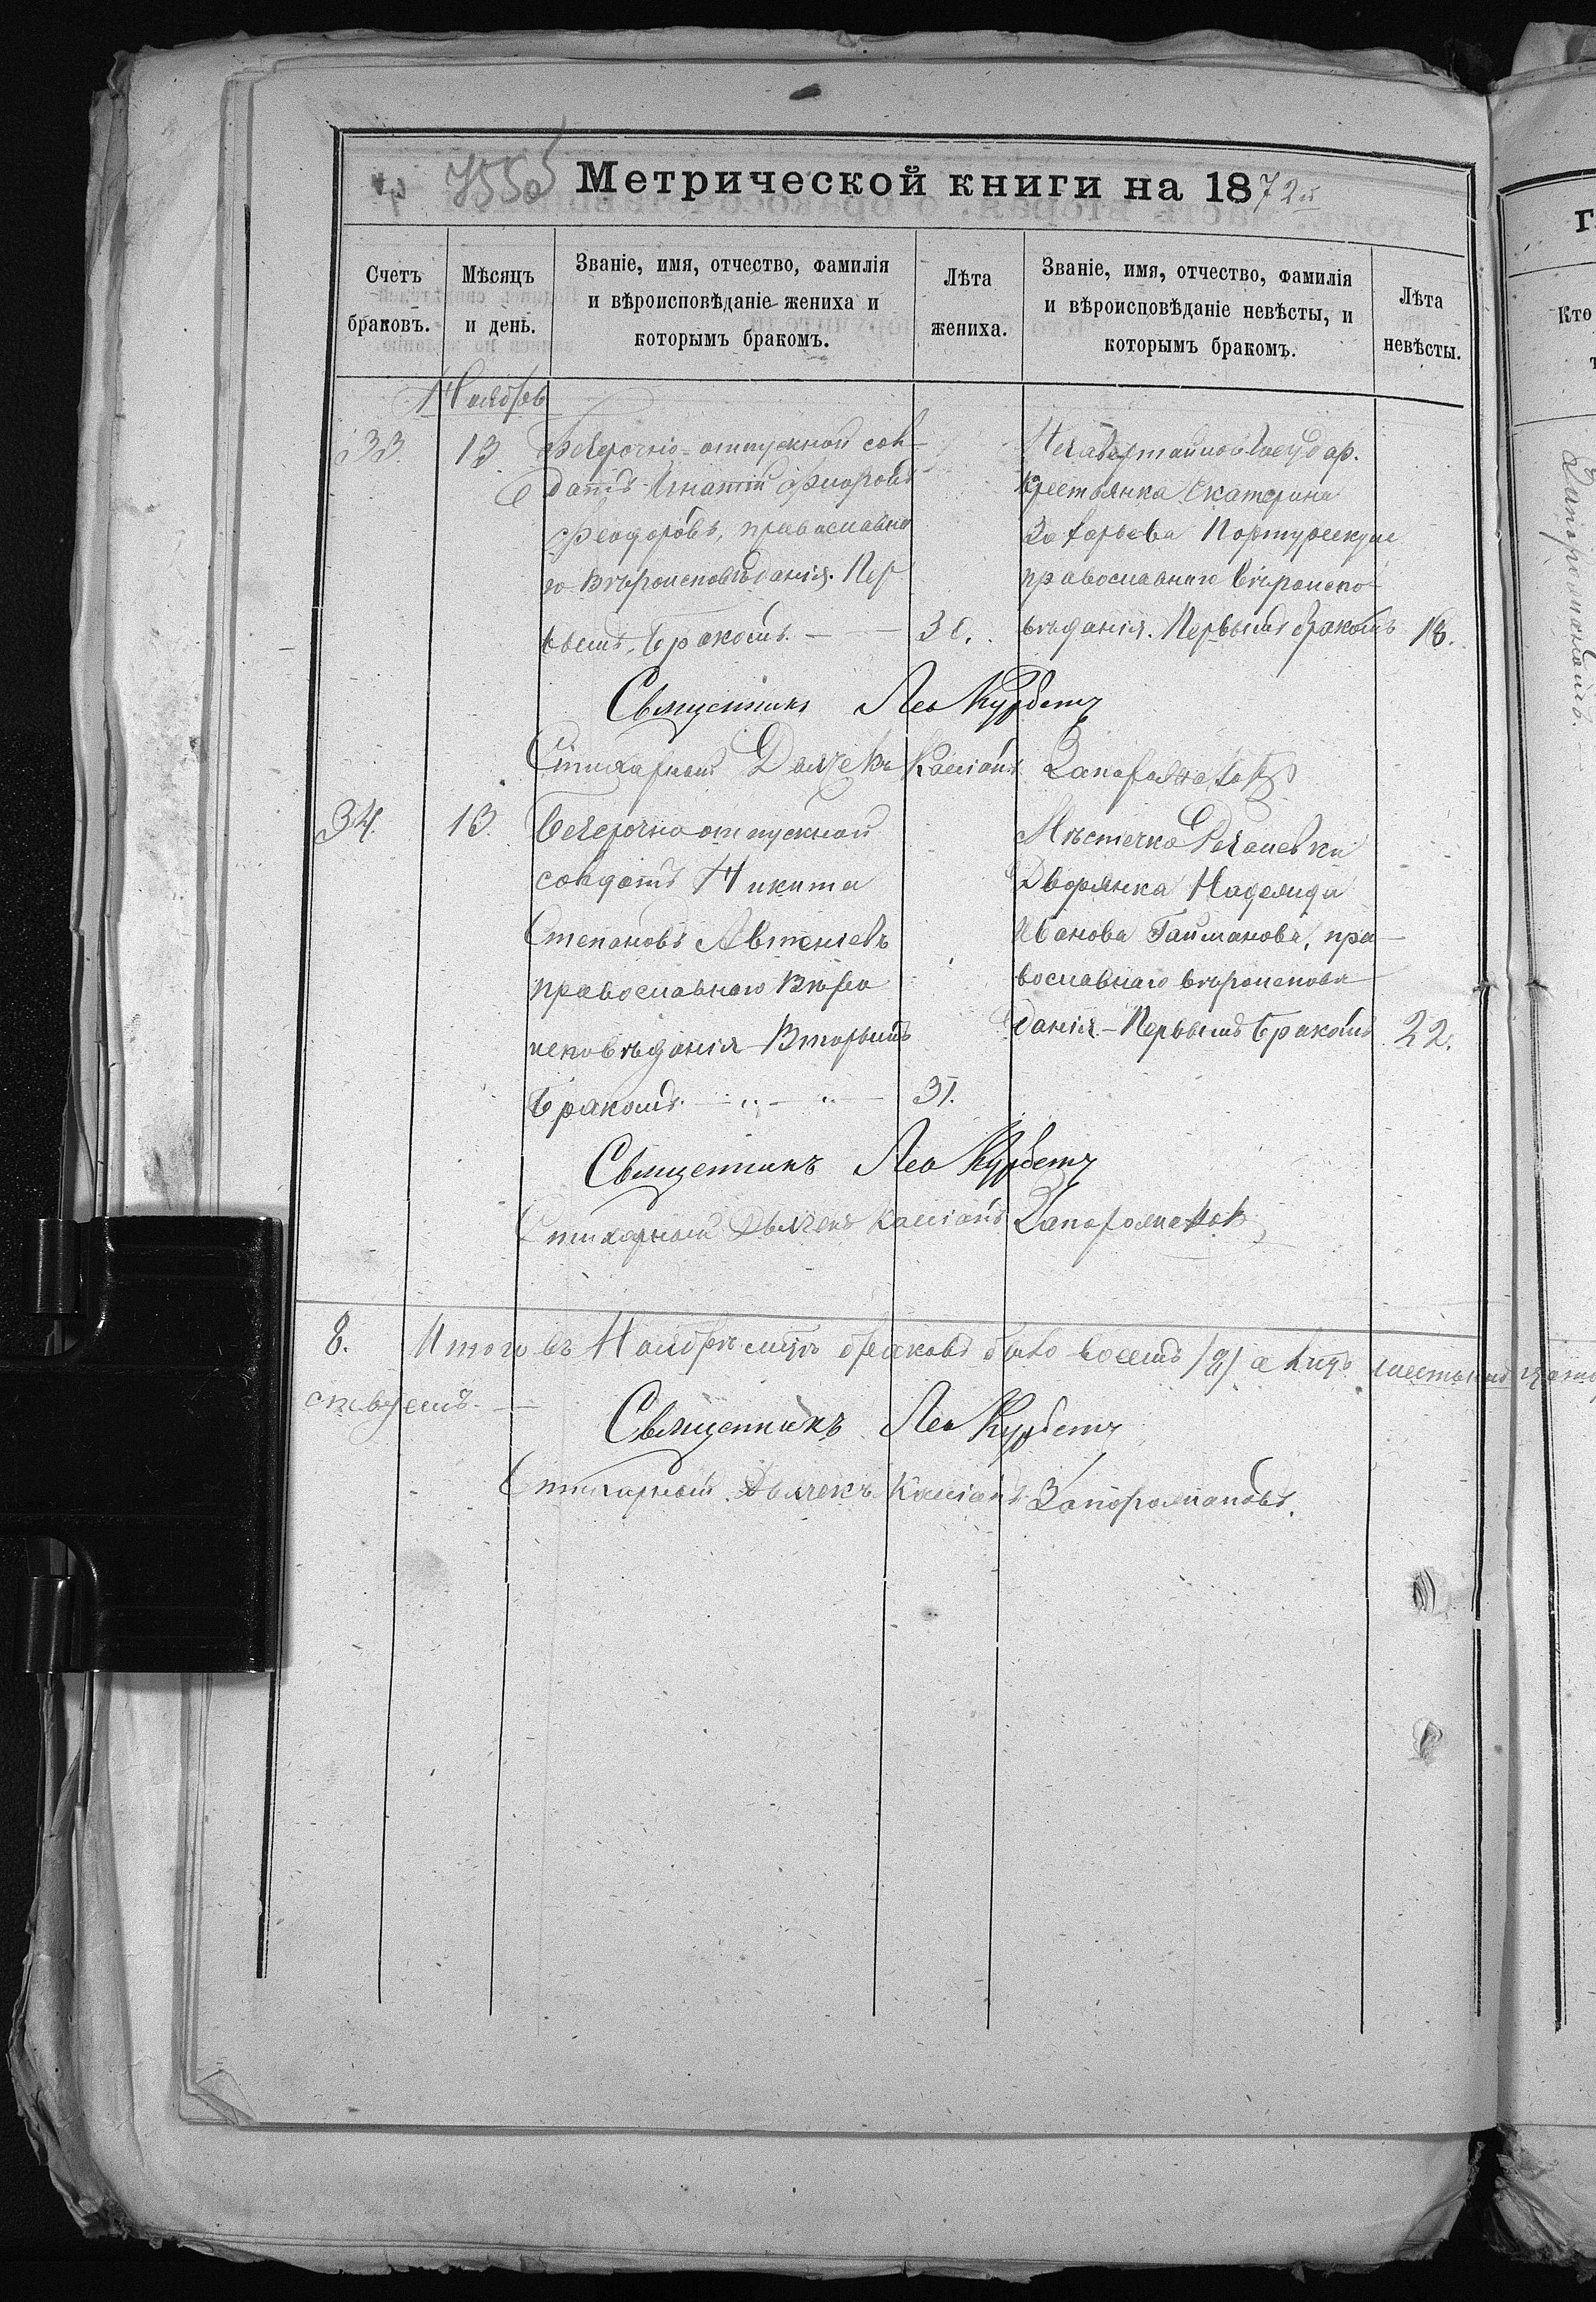 755об
Метрической книги на 1872й
Счетъ браковъ.
Мѣсяцъ и день.
Званіе, имя, отчество, фамилія и вѣроисповѣданіе жениха и которымъ бракомъ.
Лѣта жениха.
Званіе, имя, отчество, фамилія и вѣроисповѣданіе невѣсты, и которымъ бракомъ.
Лѣта невѣсты.
Ноябрь
33. 13
безсрочно-отпускной сол-
датъ Игнатій
Феодоровъ, православна
го Вѣроисповѣданія. Пер
вымъ Бракомъ.
крестьянка Екатерина
Захарьева
православнаго Вѣроиспо
вѣданія. Первымъ бракомъ 18.
Священникъ Лео Курбетъ
Стихарный Дьячекъ Кассіанъ Запорожановъ
34. 13.
безсрочно отпускной
солдатъ Никита
Степановъ
православнаго Вѣро
исповѣданія Вторымъ
Бракомъ. 31.
Мѣстечка
Дворянка Надежда
Иванова Гайманова, пра-
вославнаго вѣроисповѣ
данія.- Первымъ Бракомъ 22.
Священникъ Лео Курбетъ
Стихарный Дьячекъ Кассіанъ Запорожановъ
8. Итого въ Ноябрѣ мцѣ браковъ было восемъ /8/ а лицъ
Священникъ Лео Курбетъ
Стихарный Дьячекъ Кассіанъ Запорожановъ.
Кто